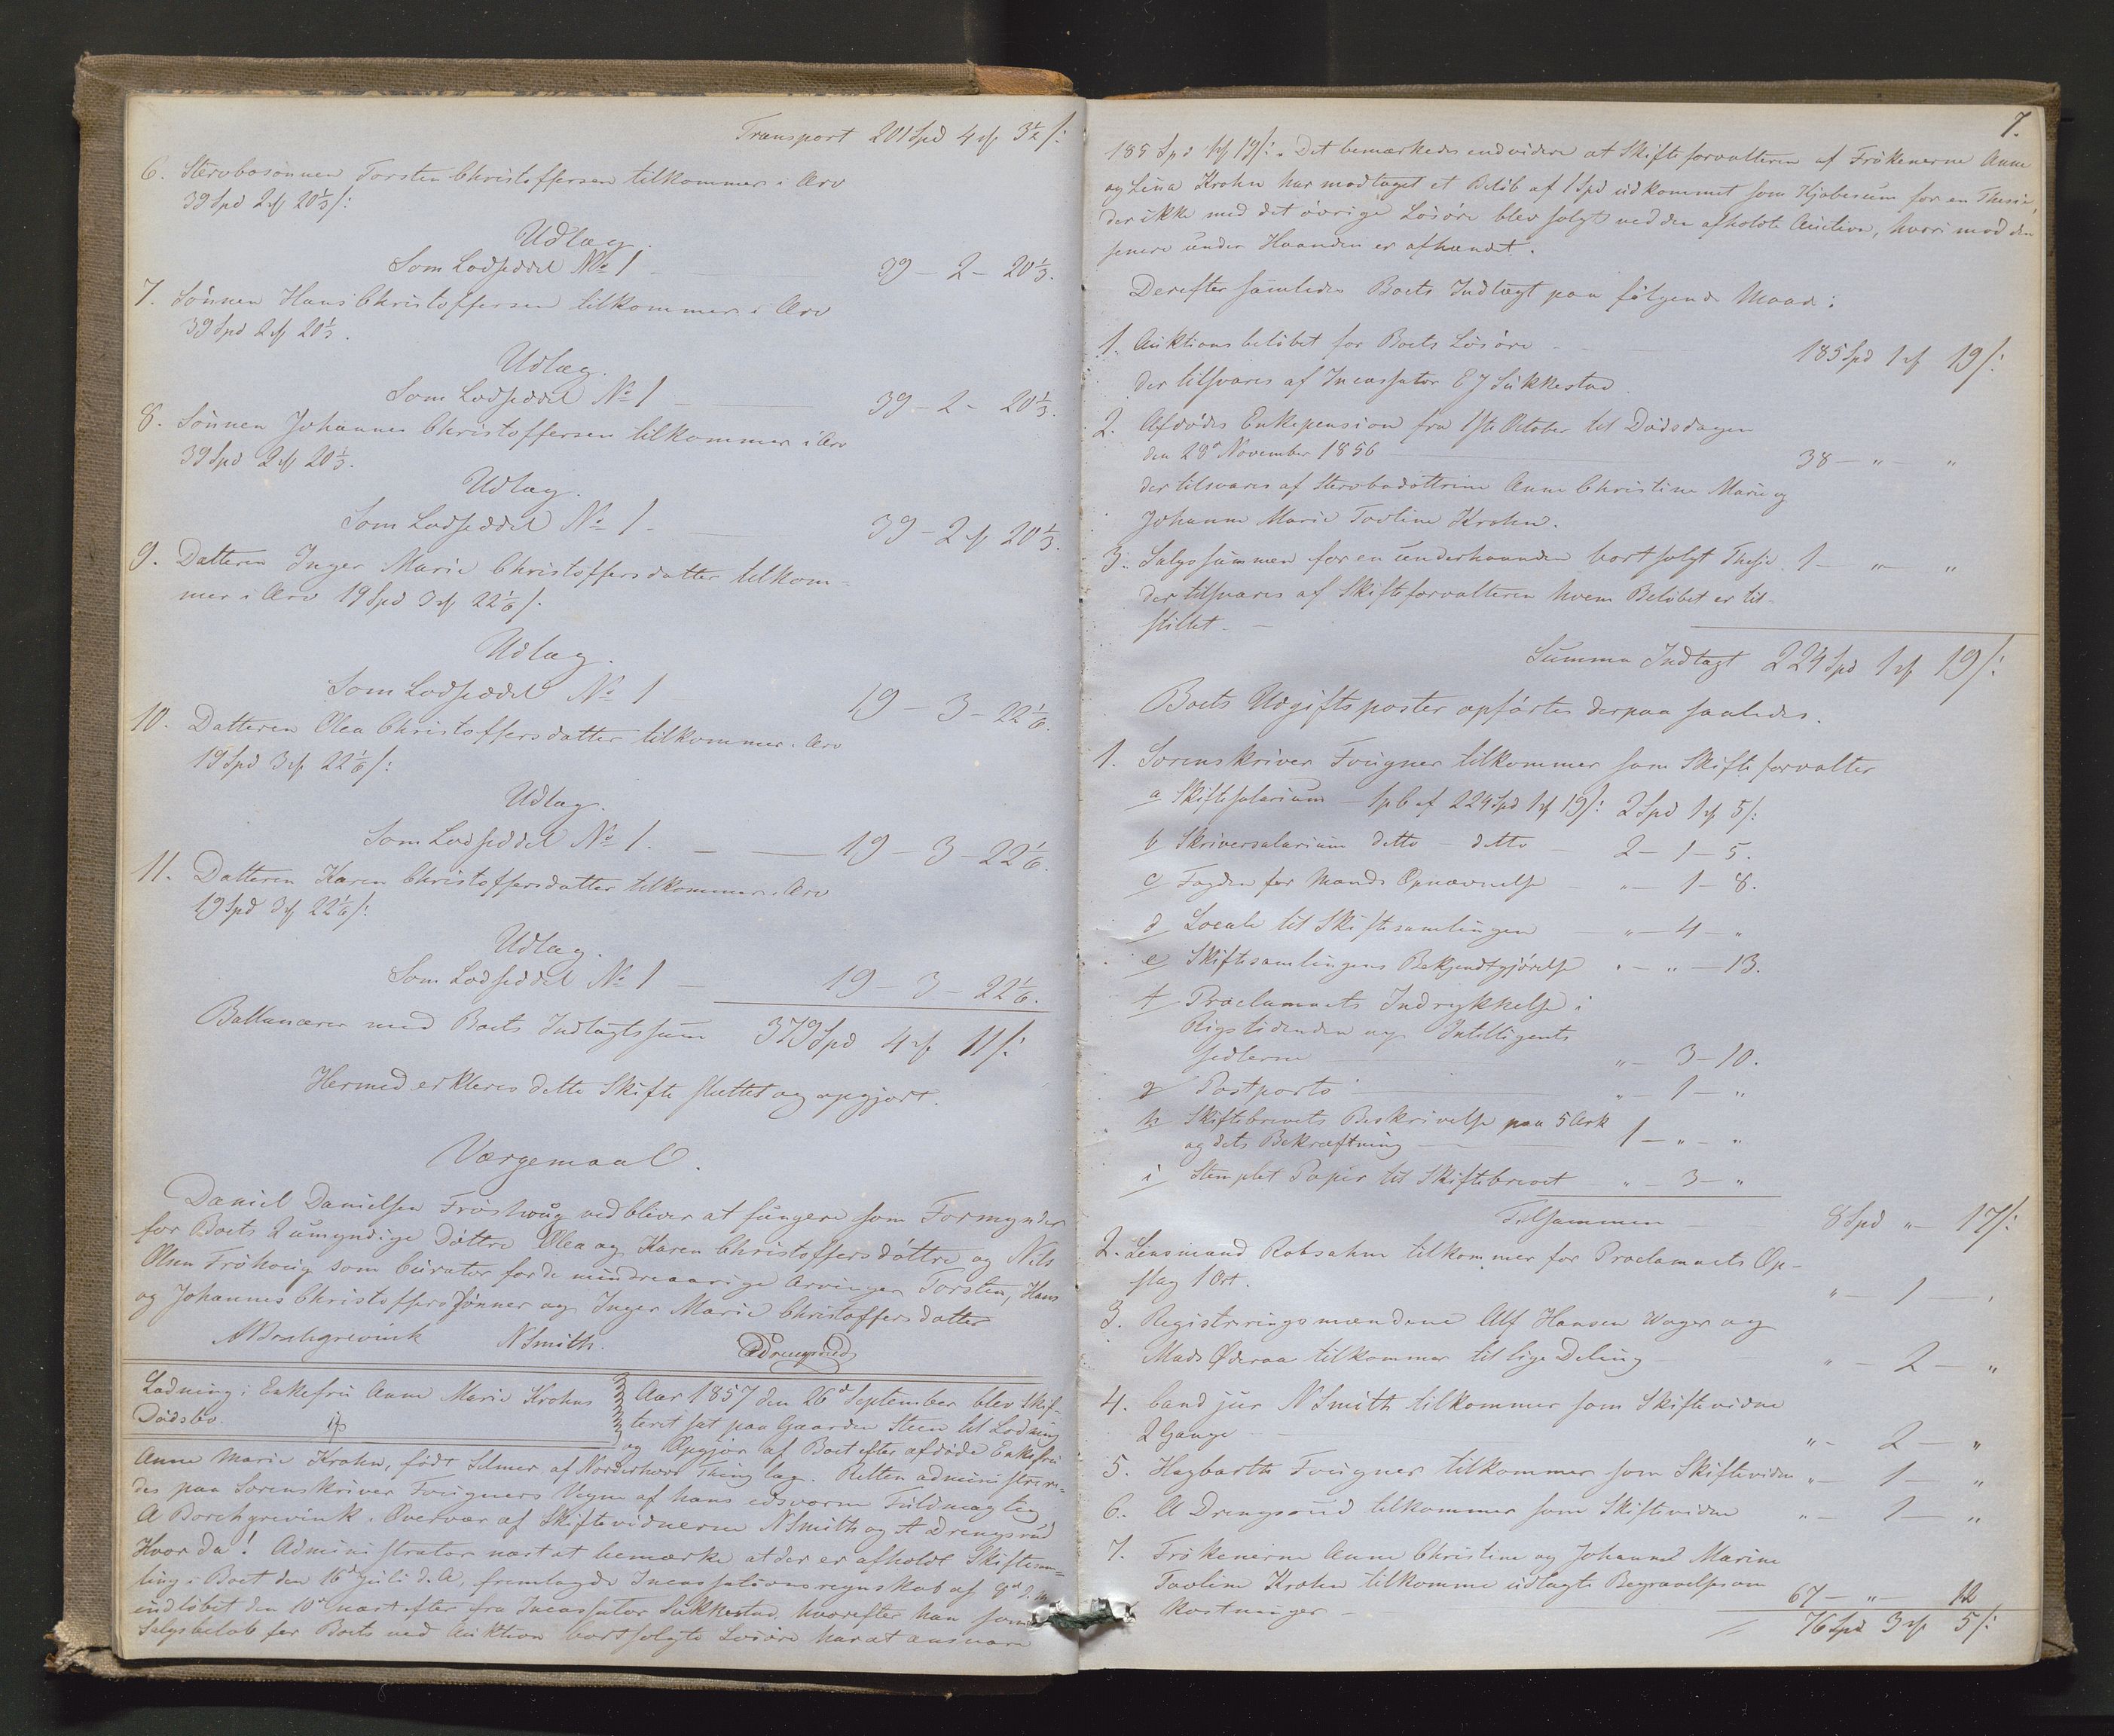 Transport 201 Spd 4 # 3½ /:
6. Stervbosønnen Torsten Christoffersen tilkommer i Arv
39 Spd 2 # 20⅓ /:
Udlæg.
Som Lodseddel No 1 — 39 – 2 – 20⅓.
7. Sønnen Hans Christoffersen tilkommer i Arv
39 Spd 2 # 20⅓.
Udlæg.
Som Lodseddel No 1 — 39 – 2 – 20⅓.
8. Sønnen Johannes Christoffersen tilkommer i Arv
39 Spd 2 # 20⅓.
Udlæg.
Som Lodseddel No 1 — 39 – 2 # 20⅓.
9. Datteren Inger Marie Christoffersdatter tilkom-
mer i Arv 19 Spd 3 # 22⅙ /.
Udlæg.
Som Lodseddel No 1 19 – 3 – 22⅙.
10. Datteren Olea Christoffersdatter tilkommer i Arv
19 Spd 3 # 22⅙ /:
Udlæg.
Som Lodseddel No 1. — 19 – 3 – 22⅙.
11. Datteren Karen Christoffersdatter tilkommer i Arv
19 Spd 3 # 22⅙ /:
Udlæg.
Som Lodseddel No 1 — 19 – 3 – 22⅙.
Ballancerer med Boets Indtægtssum 379 Spd 4 # 11 /:
Hermed erklæres dette Skifte sluttet og opgjort.
Værgemaal.
Daniel Danielsen Frøshoug vedbliver at fungere som Formynder
for Boets 2 umyndige Døttre Olea og Karen Christoffersdøttre og Nils
Olsen Frøhoug som Curator for de mindreaarige Arvinger Torsten, Hans
og Johannes Christofferssønner og Inger Marie Christoffersdatter
A Borchgrevink N Smith. A Drengsrud
Lodning i Enkefru Anne Marie Krohns
Dødsbo.
Aar 1857 den 26d September blev Skif-
teret sat paa Gaarden Steen til Lodning
og Opgjør af Boet efter afdøde Enkefru
Anne Marie Krohn, født Selmer af Norderhovs Thinglag. Retten administrere-
des paa Sorenskriver Fougners Vegne af hans edsvorne Fuldmægtig
A Borchgrevink. Overvær af Skiftevidnerne N Smith og A Drengsrud
Hvor da! Administrator næst at bemærke at der er afholdt Skiftesam-
ling i Boet den 16d Juli d. A. fremlagde Incassationsregnskab af 8d d. M.
indløbet den 10d næstefter fra Incassator Sukkestad, hvorefter han som
Salgsbeløb for Boets ved Auktion bortsolgte Løsøre har at ansvare
7.
185 Spd 1 # 19 /:. Det bemærkedes endvidere at Skifteforvalteren af Frøkenerne Anne
og Lina Krohn har modtaget et Beløb af 1 Spd udkommet som Kjøbesum for en Thesie,
der ikke med det øvrige Løsøre blev solgt ved den afholdte Auction, hvorimod den
senere under Haanden er afhændet.
Derefter samledes Boets Indtægt paa følgende Maade:
1. Auktionsbeløbet for Boets Løsøre — 185 Spd 1 # 19 /:
der tilsvares af Incassator E J Sukkestad.
2. Afdødes Enkepension fra 1ste October til Dødsdagen
den 28d November 1856 — 38 – " – "
der tilsvares af Stervbodøttrene Anne Christine Marie og
Johanne Marie Tovline Krohn.
3. Salgssummen for en underhaanden bortsolgt Thesie. 1 – " – "
der tilsvares af Skifteforvalteren hvem Beløbet er til-
stillet
Summa Indtægt 224 Spd 1 # 19 /:
Boets Udgiftsposter opførtes derpaa saaledes.
1. Sorenskriver Fougner tilkommer som Skifteforvalter
a Skiftesalarium – 1 pC af 224 Spd 1 # 19 /: 2 Spd 1 # 5 /:
b Skriversalarium detto – detto – 2 – 1 – 5.
c Fogden for Mænds Opnævnelse – " – 1 – 8.
d Locale til Skiftesamlingen – " – 4 – "
e Skiftesamlingens Bekjendtgjørelse " – " – 13.
f Proclamaets Indrykkelse i
Rigstidenden og Intelligents
sedlerne — " – 3 – 10.
g Postporto — " – 1 – "
h Skiftebrevets Beskrivelse paa 5 Ark
og dets Bekræftning — 1 – " – "
i Stemplet Papir til Skiftebrevet – " – 3 – "
Tilsammen — 8 Spd " – 17 /:
2. Lensmand Robsahm tilkommer for Proclamaets Op-
slag 1 Ort. " – 1 – "
3. Registreringsmændene Alf Hansen Wager og
Mads Øderaa tilkommer til lige Deling " – 2 – "
4. Cand jur N Smith tilkommer som Skiftevidne
2 Gange — " – 2 – "
5. Hagbarth Fougner tilkommer som Skiftevidne " – 1 – "
6. A Drengsrud tilkommer som Skiftevidne " – 1 – "
7. Frøkenerne Anne Christine og Johanne Marine
Tovline Krohn tilkomme udlagte Begravelsesom
kostninger — 67 – " – 12
76 Spd 3 # 5 /: